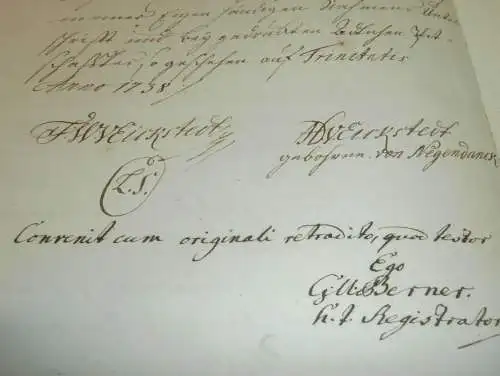 in einer Eigen händigen Nahmens Unter
schrifft und beygedruckten Adlichen Pet-
schafftes, so geschehen auf Trinitatis
Anno 1738
FWVEickstedt
L. S.
HVEickstedt
gebohren von Negendanck
Convenit cum originali retradito, quod testor
Ego
Berner.
h. t. Registrator